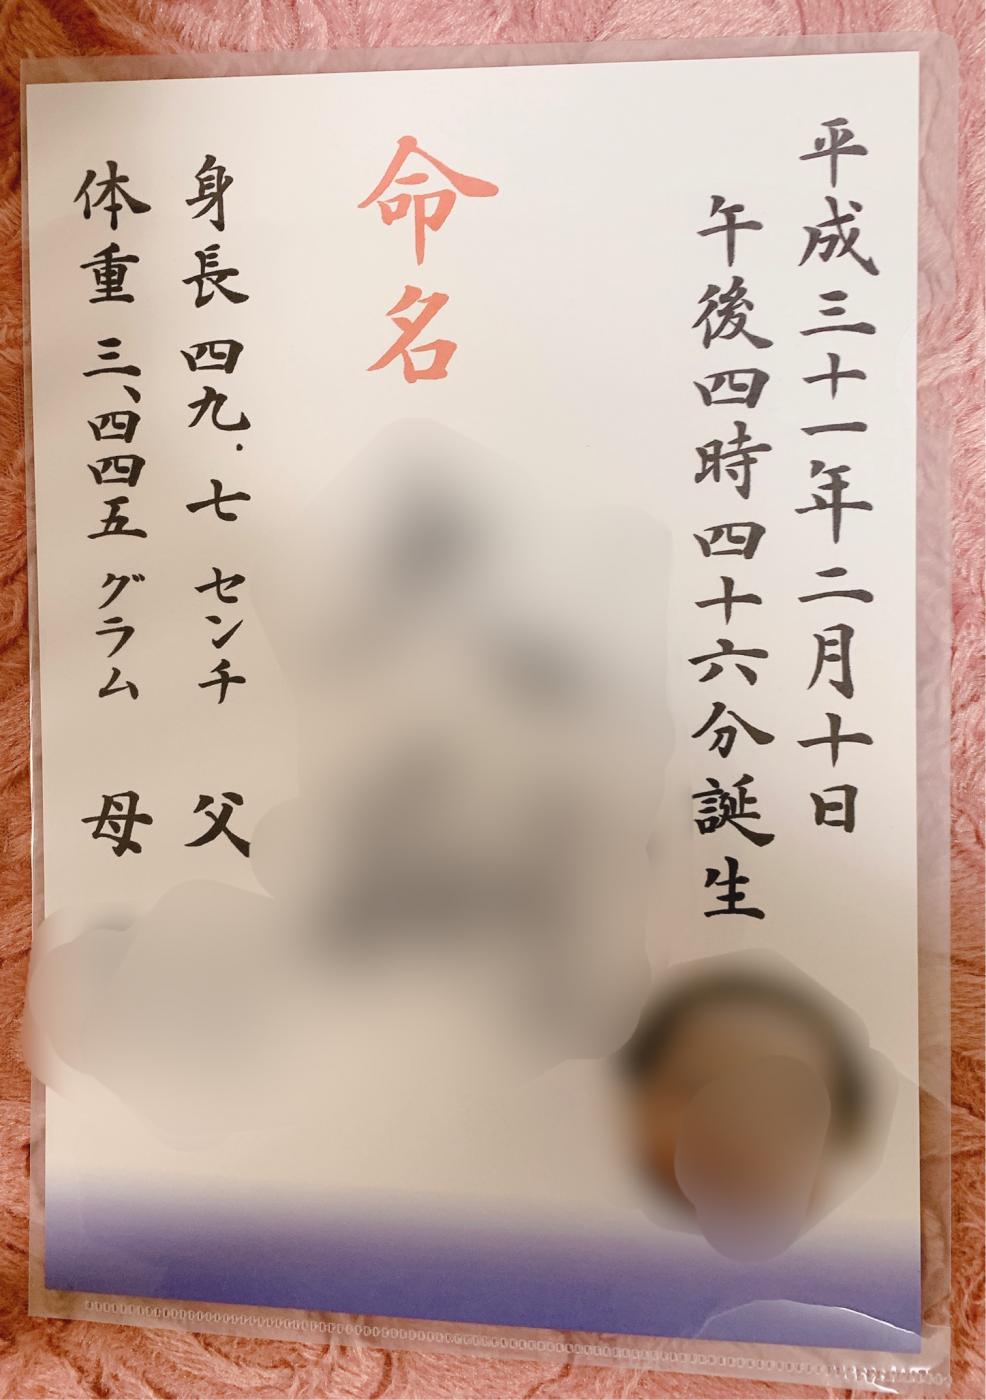 平成三十一年二月十日
午後四時四十六分誕生
命名
身長 四九.七 センチ 父
体重 三、四四五 グラム 母